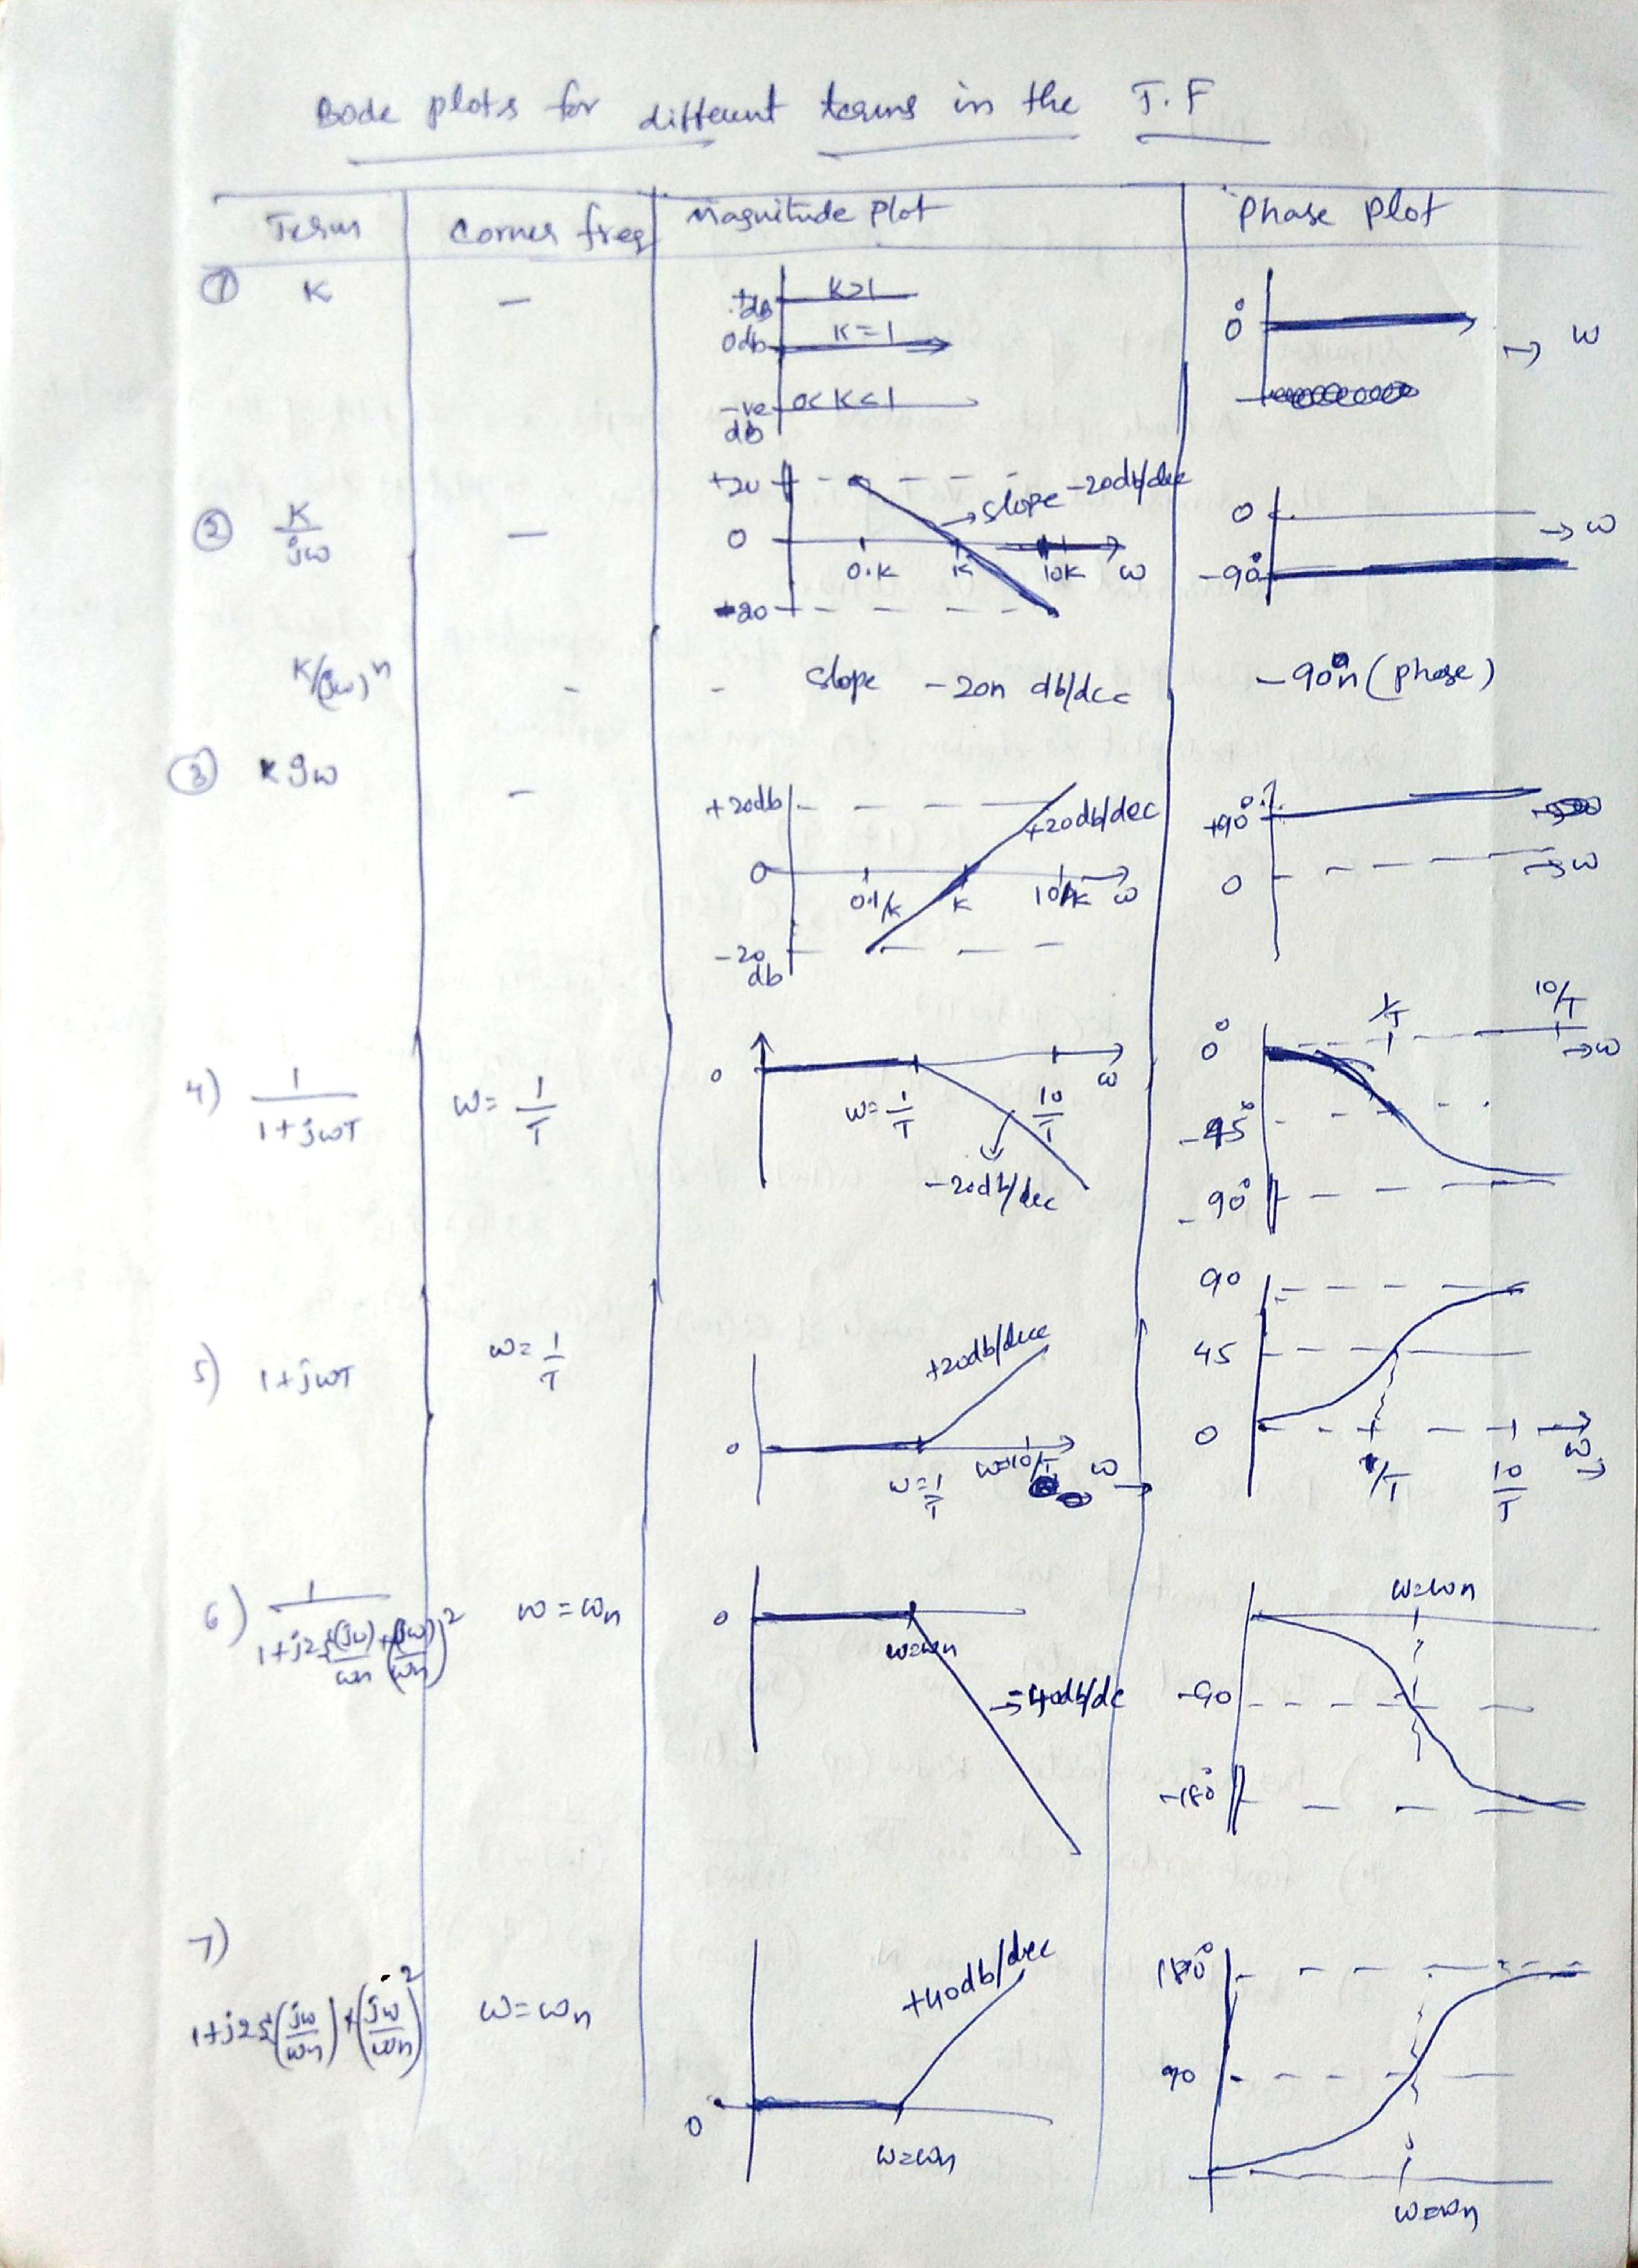 Bode plots for different terms in the T.F
Term Corner freq Magnitude Plot Phase plot
① K —
+ db K>1
0db K=1
-ve db 0<K<1
0° → ω
② K/jω —
+20 slope -20db/dec
0 0.1K K 10K ω
-20
0 → ω
-90°
K/(jω)ⁿ - - slope -20n db/dec -90°n (phase)
③ K jω —
+20db +20db/dec
0 0.1/K K 10/K ω
-20 db
+90°
0 → ω
4) 1/(1+jωT) ω= 1/T
0 ω= 1/T 10/T ω
-20db/dec
0° 1/T 10/T → ω
-45°
-90°
5) 1+jωT ω= 1/T
+20db/dec
0 ω=1/T ω=10/T ω →
90
45
0 1/T 10/T ω →
6) 1/(1+j2ξ(jω)/ωn+(jω/ωn)² ω=ωn
0 ω=ωn
→ -40db/de
ω=ωn
-90
-180°
7)
1+j2ξ(jω/ωn)+(jω/ωn)² ω=ωn
+40db/dec
0 ω=ωn
180°
90
ω=ωn